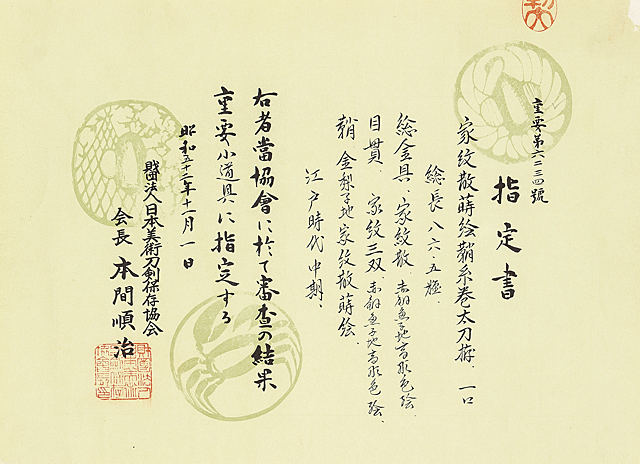 重要第六二三四號
指定書
家紋散蒔絵鞘糸巻太刀拵、一口
総長八六・五糎、
総金具、家紋散、赤銅魚子地高彫色絵、
目貫、家紋三双、赤銅魚子地高彫色絵、
鞘金梨子地家紋散蒔絵、
江戸時代中期、
右者當協會に於て審査の結果
重要小道具に指定する
昭和五十二年十一月一日
財団法人日本美術刀剣保存協会
会長本間順治